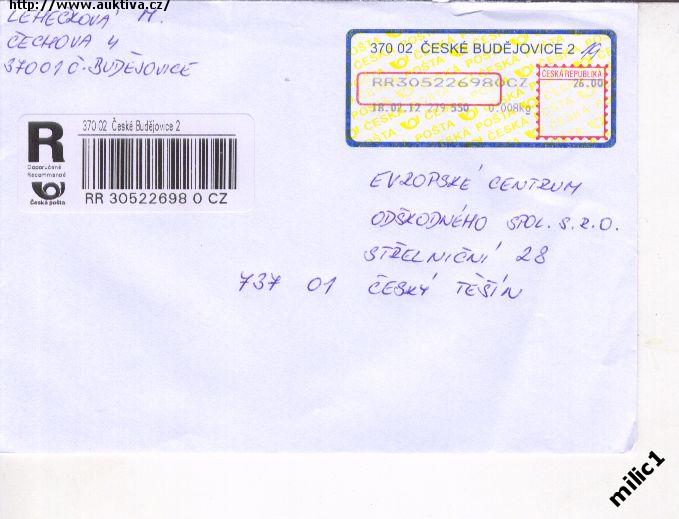 http://www.auktiva.cz/
LEHEČKOVÁ M.
ČECHOVA 4
37001 Č. BUDĚJOVICE
370 02 ČESKÉ BUDĚJOVICE 2
RR305226980CZ
18.02.12 279 550 0.008kg
ČESKÁ REPUBLIKA
26.00
R
Doporučeně
Recommandé
Česká pošta
370 02 České Budějovice 2
RR 30522698 0 CZ
EVROPSKÉ CENTRUM
ODŠKODNÉHO SPOL. S.R.O.
STŘELNIČNÍ 28
737 01 ČESKÝ TĚŠÍN
milic1